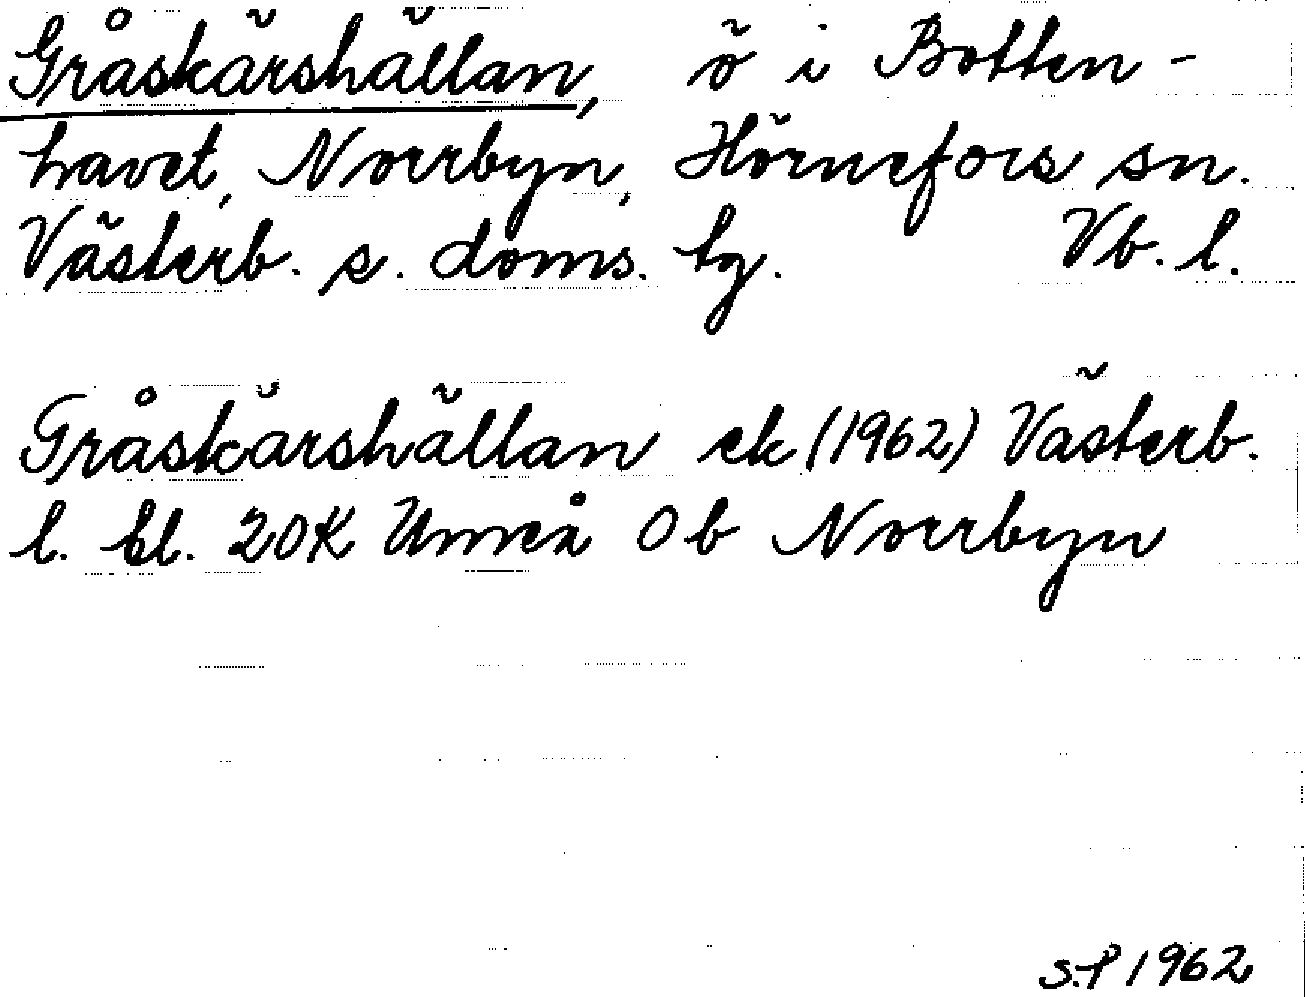 Gråskärshällan, ö i Botten-
havet, Norrbyn, Hörnefors sn.
Västerb. s. doms. tg. Vb. l.
Gråskärshällan ek (1962) Västerb.
l. bl. 20K Umeå 0b Norrbyn
S.P 1962